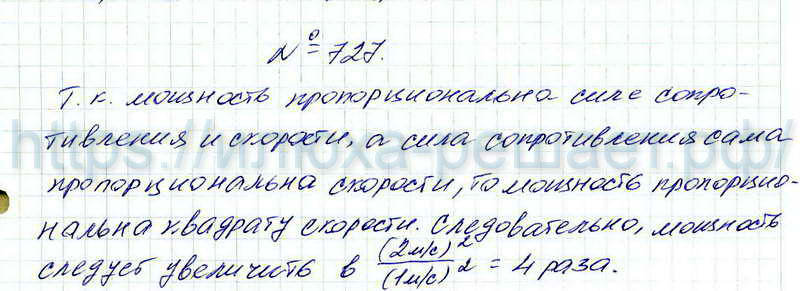 № 727.
Т.к. мощность пропорциональна силе сопро-
тивления и скорости, а сила сопротивления сама
пропорциональна скорости, то мощность пропорцио-
нальна квадрату скорости. Следовательно, мощность
следует увеличить в (2м/с)²/(1м/с)² = 4 раза.
https://илюха-решает.рф/